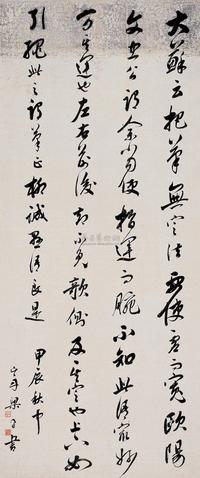 大蘇云把筆無定法要使虛而寬歐陽
文忠公謂余當使指運而腕不知此語最妙
方其運也左右前後却不免欹側及其定也上下如
引繩此之謂筆正柳誠懸語良是
甲辰秋中
山舟梁同書